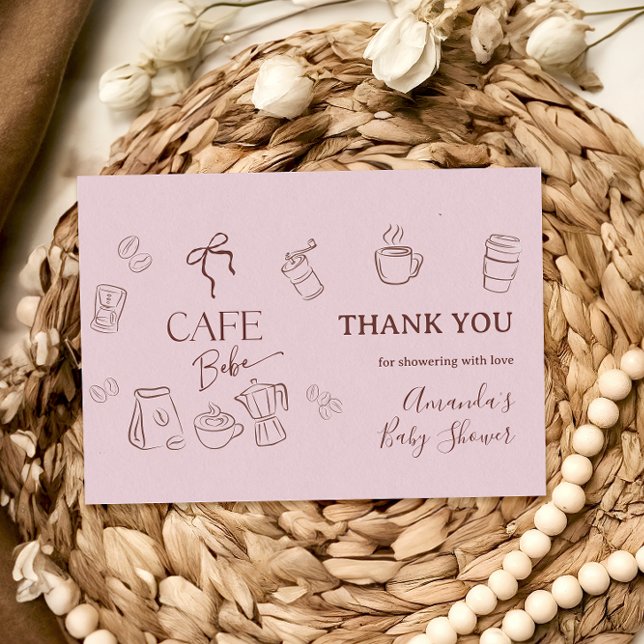 CAFE
Bebe
THANK YOU
for showering with love
Amanda's
Baby Shower